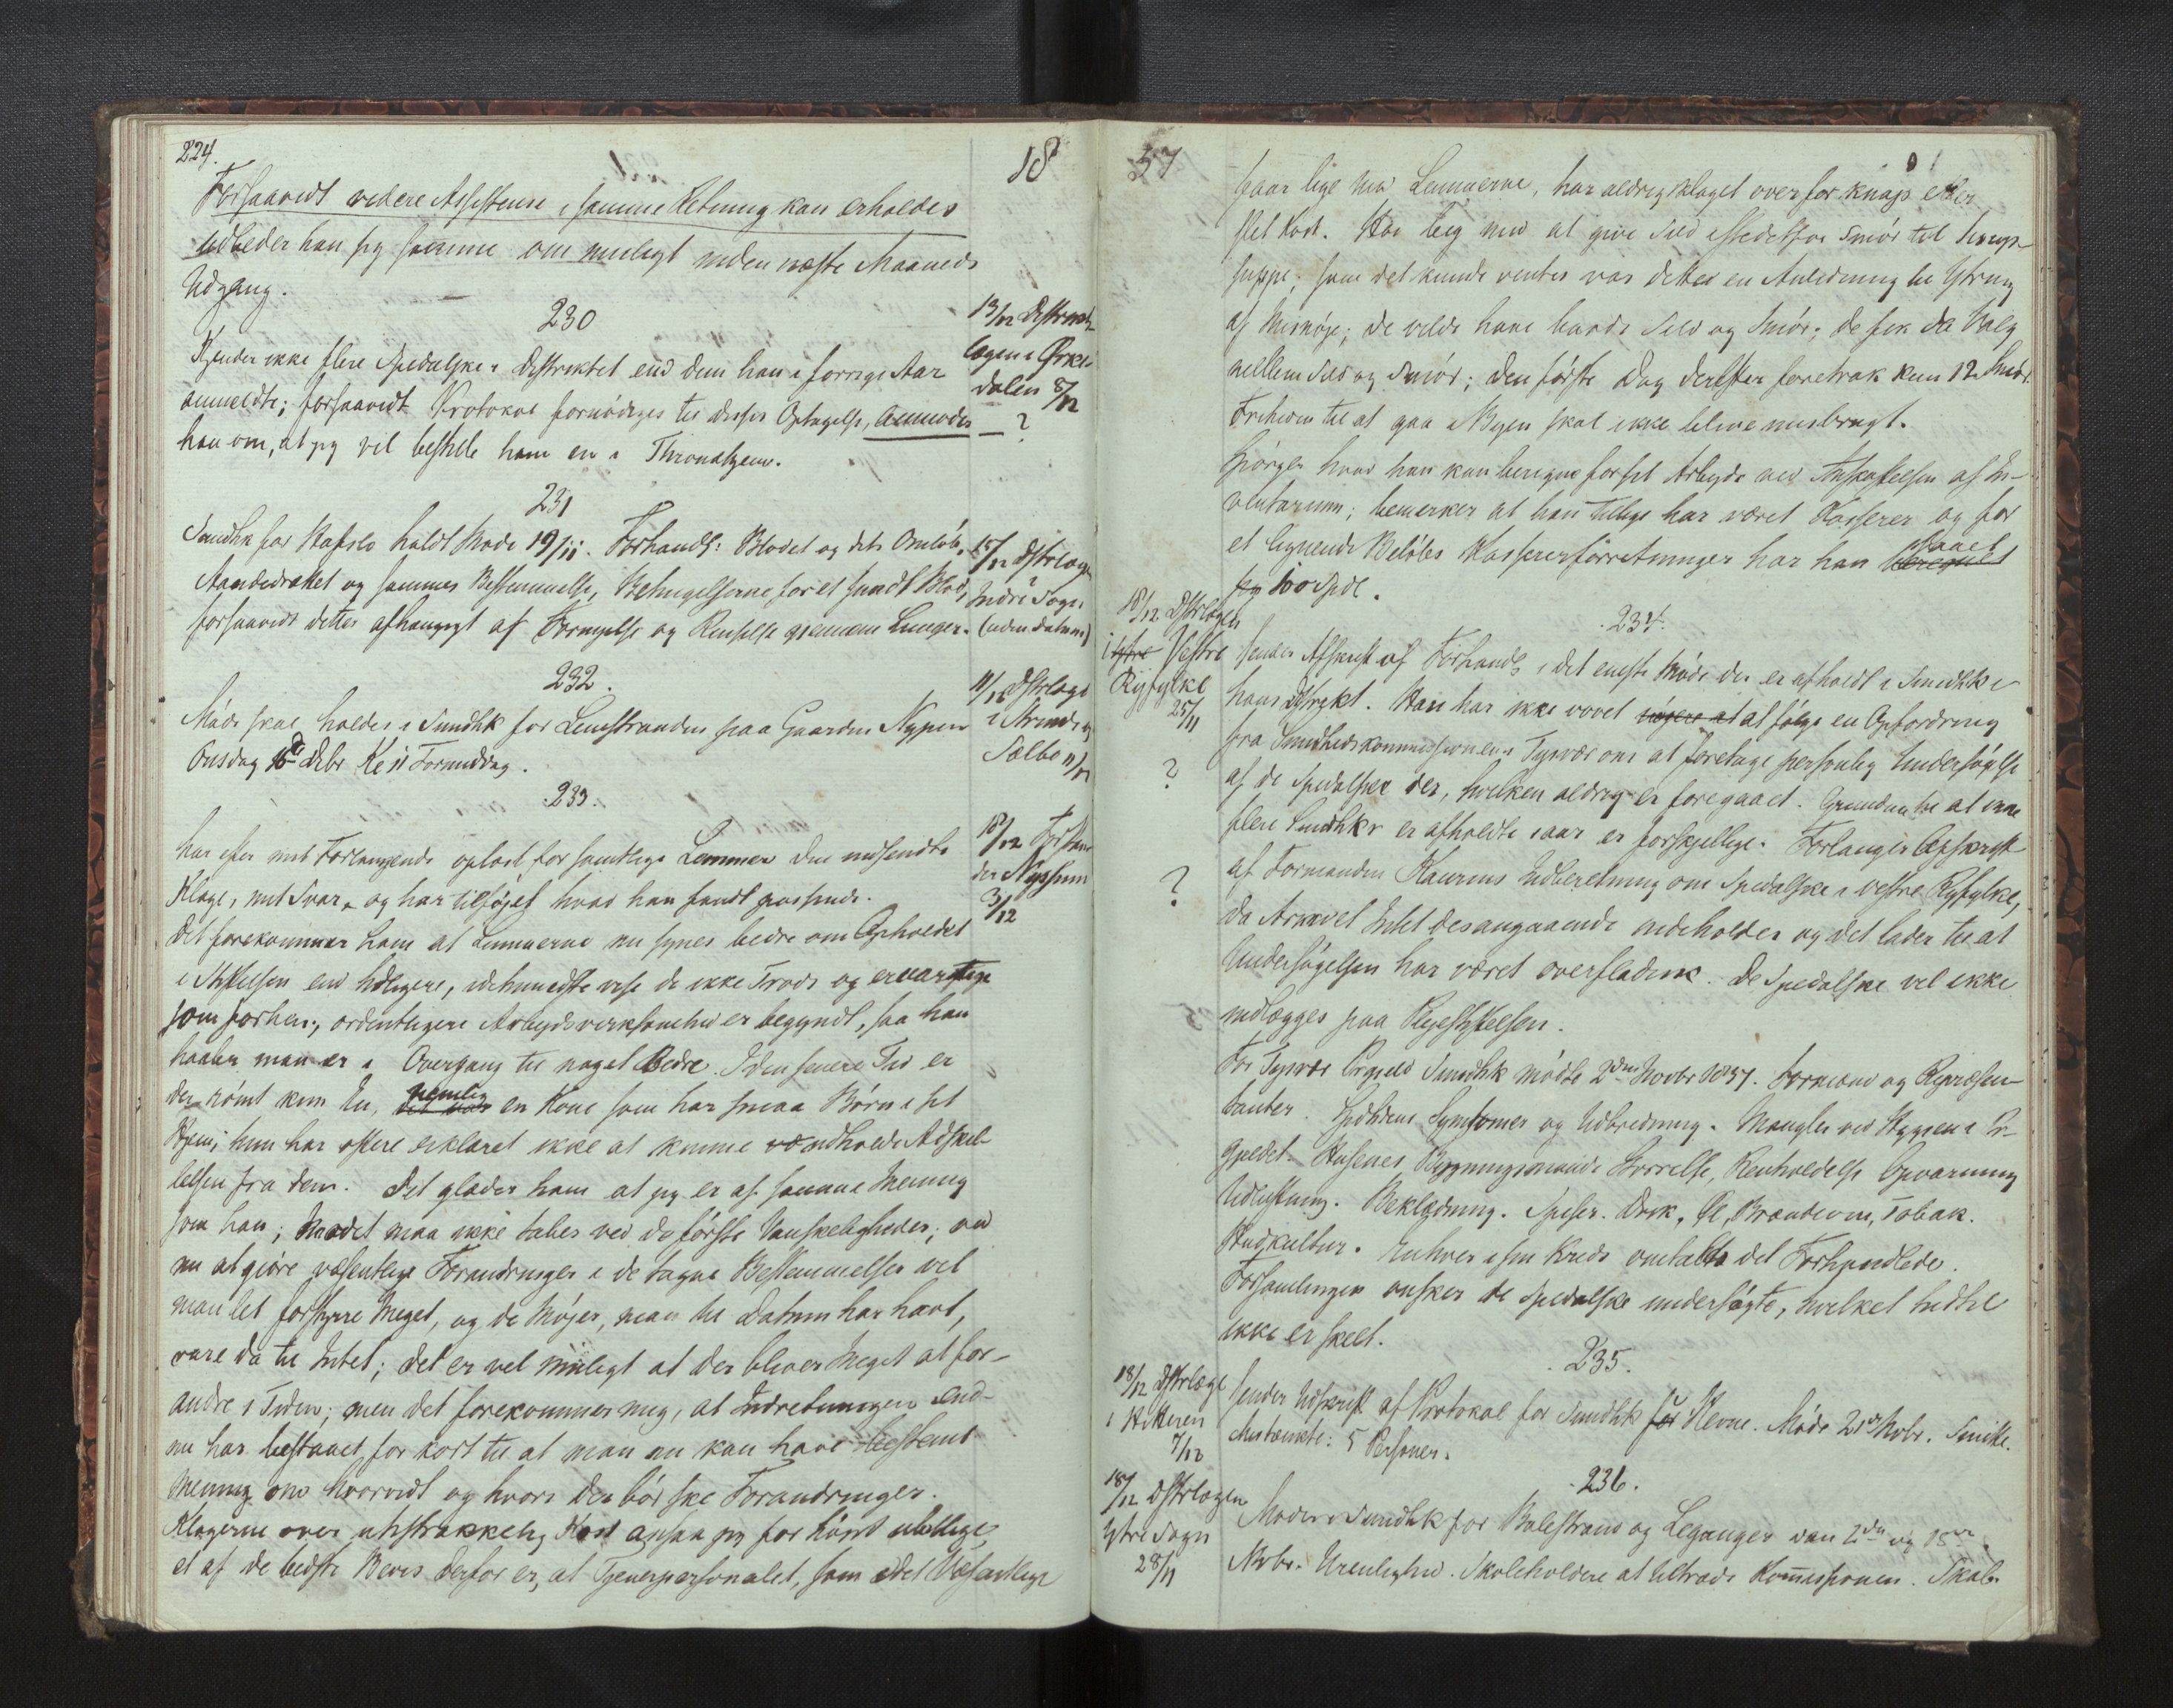 224.
18
Forsaavidt videre Assistense i samme Retning kan erholdes
udbeder han sig samme om muligt inden næste Maaneds
Udgang.
230
13/12 Distrikts-
lægen i Ørke-
dalen 8/12
Kjender ikke flere Spedalske i Distriktet end dem han i forrige Aar
anmeldte; forsaavidt Protokol fornødiges til disses Optagelse, anmoder
han om, at jeg vil bestille ham en i Throndhjem.
— ?
231
15/12 Dstrlægen
Indre Sogn
(uden datum)
Sundhk for Hafslo holdt Møde 19/11. Forhandl: Blodet og dets Omløb,
Aandedrættet og sammes Bestemmelse, Betingelserne for et sundt Blod,
forsaavidt dettes afhængigt af Fornyelse og Renselse gjennem Lunger.
232.
11/12 Dstrlæge
i Strinde og
Sælbo 11/12
Møde skal holdes i Sundhk for Leinstranden paa Gaarden Nypen
Onsdag 16de Debr Kl 11 Formiddag.
233.
18/12 Forstan-
der Nyssum
3/12
har efter mit Forlangende oplæst for samtlige Lemmer den indsendte
Klage, mit Svar, og har tilføjet hvad han fandt passende.
Det forekommer ham at Lemmerne nu synes bedre om Opholdet
i Stiftelsen end tidligere, idetmindste vise de ikke Trods og
som forhen; ordentligere Arbejdsvirksomhed er begyndt, saa han
haaber man er i Overgang til noget Bedre. I den senere Tid er
der rømt kun En, det var nemlig en Kone som har smaa Børn i sit
Hjem; hun har oftere erklæret ikke at kunne udholde Adskil-
lelsen fra dem. Det glæder ham at jeg er af samme Mening
som han; Modet maa ikke tabes ved de første Vanskeligheder; ved
nu at giøre væsentlige Forandringer i de tagne Bestemmelser vil
man let forstyrre Meget, og de Møjer, man til Datum har havt,
være da til Intet; det er vel muligt at der bliver Meget at for-
andre i Tiden; men det forekommer mig, at Indretningen end-
nu har bestaaet for kort til at man nu kan have bestemt
Mening om hvorvidt og hvori der bør ske Forandringer.
Klagerne over utilstrækkelig Kost ansaa jeg for høist ubillige,
et af de bedste Bevis derfor er, at Tjenerpersonalet, som i det Væsentlige
57
faar lige med Lemmerne, har aldrig klaget over for knap eller
slet Kost. Han lag med at give Sild istedetfor Smør til
suppe; som det kunde ventes var dette en Anledning til Ytring
af Misnøje; de vilde have baade Sild og Smør; de fik da Valg
mellem Sild og Smør; den første Dag derefter foretrak kun 12 Smør.
Friheden til at gaa i Byen skal ikke blive misbrugt.
Spørger hvad han kan beregne for sit Arbejde ved Anskaffelsen af In-
ventarium; bemærker at han tillige har været Kasserer og for
et lignende Beløbs Kassererforretninger har han beregnet faaet
100 Spdl.
18/12 Dstrlægen
i Ytre Vestre
Ryfylke
25/11
234.
Sender Afskrift af Forhandl i det eneste Møde der er afholdt i Sundhk i
hans Distrikt. Han har ikke vovet at følge en Opfordring
fra Sundhedskommissionen i Tysvær om at foretage personlig Undersøgelse
af de Spedalske der, hvilken aldrig er foregaaet. Grunden til at ikke
flere Sundhkr er afholdte iaar er forskjellige. Forlanger Afskrift
af Formanden Kaurins Indberetning om Spedalske i vestre Ryfylke,
da Arkivet Intet desangaaende indeholder og det lader til at
Undersøgelsen har været overfladisk. De Spedalske vil ikke
indlægges paa Plejestiftelsen.
?
?
For Tysvær Prgjeld Sundhk mødte 2den Novbr 1857. Formænd og Repræsen-
tanter. Spdskens Symtomer og Udbredning. Mangler ved Hygien i Pr-
gjeldet. Husenes Bygningsmaade Størrelse, Renholdelse Opvarming
Udluftning. Beklædning. Spiser. Drik, Øl, Brændeviin, Tobak.
Hudkultur. Enhver i sin Kreds omtalte det Forhandlede.
Forsamlingen ønsker de Spedalske undersøgte, hvilket hidtil
ikke er skeet.
235.
18/12 Dstrlæge
i Hitteren
7/12
Sender Udskrift af Protokol for Sundhk for Hevne. Møde 21de Nobr.
Mistænkte: 5 Personer.
236.
18/12 Dstrlægen
Ytre Sogn
28/11
Møder i Sundhk for Balestrand og Leganger den 2den og 15de
Nobr. Urenlighed. Skoleholdere at tiltræde Kommissionen. Skab